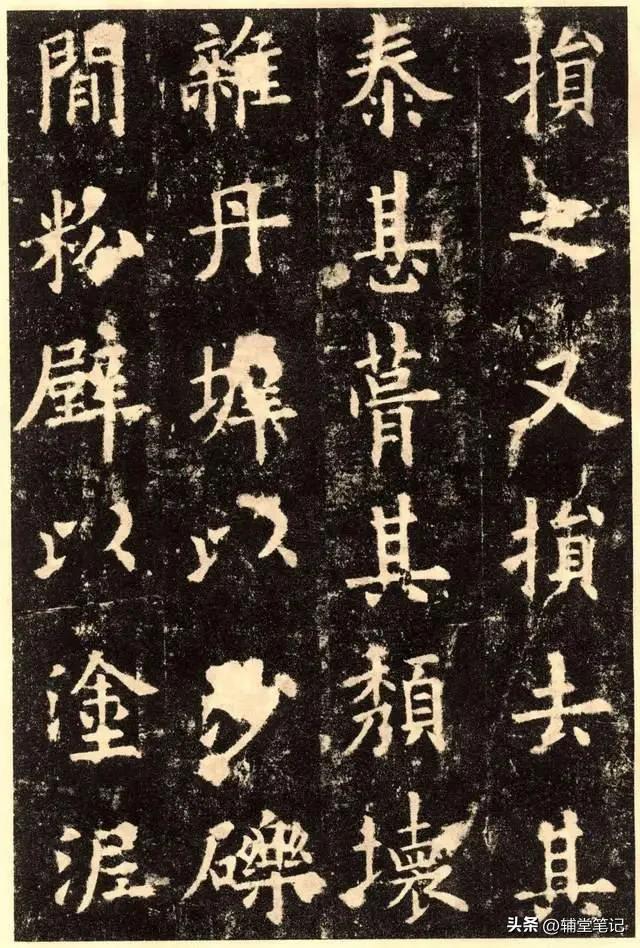 損之又損去其
泰甚葺其頽壞
雜丹墀以沙礫
閒粉壁以塗泥
头条 @辅堂笔记